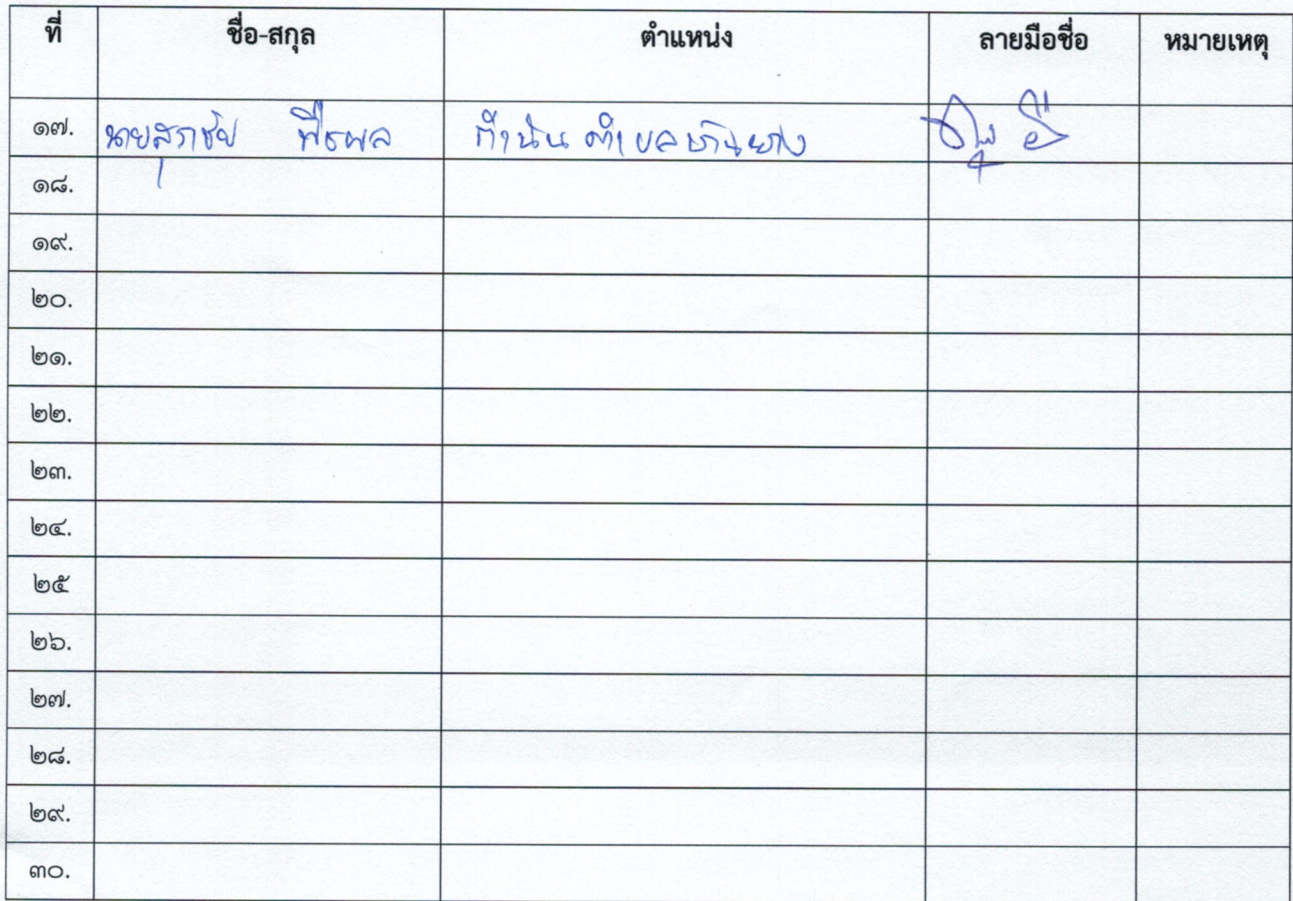 ที่ ชื่อ-สกุล ตำแหน่ง ลายมือชื่อ หมายเหตุ
๑๗. นายสุราชัย พืชผล กำนันตำบลบ้านยาง
๑๘.
๑๙.
๒๐.
๒๑.
๒๒.
๒๓.
๒๔.
๒๕
๒๖.
๒๗.
๒๘.
๒๙.
๓๐.